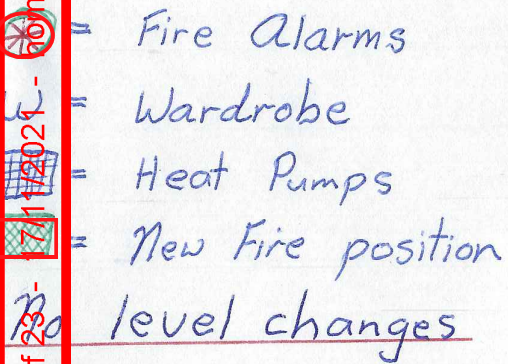 = Fire Alarms
W = Wardrobe
= Heat Pumps
= New Fire position
No level changes
f 23 - 17/11/2021 -